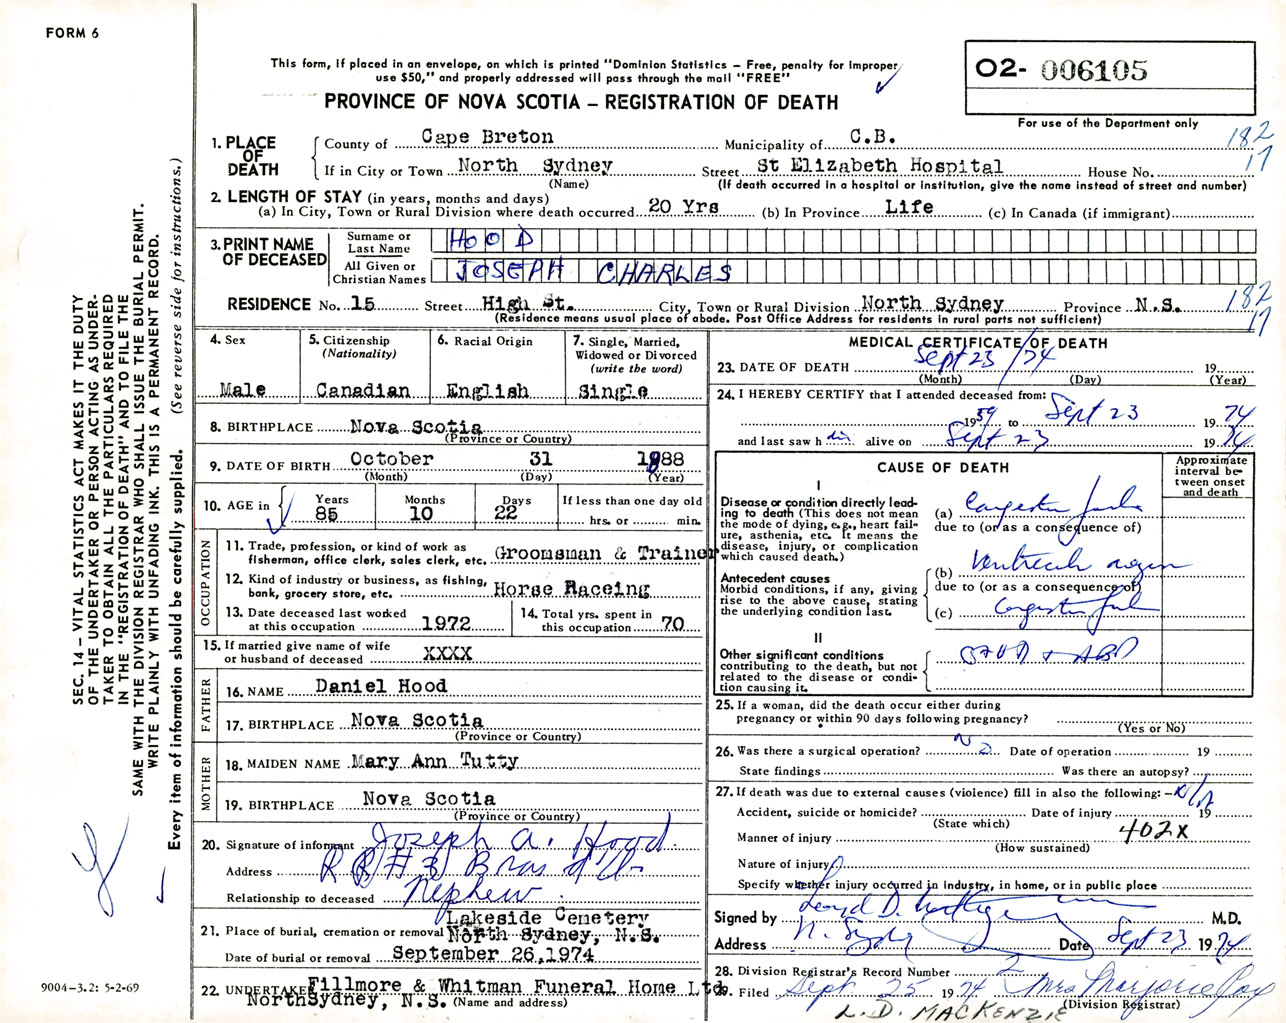 FORM 6
This form, if placed in an envelope, on which is printed "Dominion Statistics – Free, penalty for improper
use $50," and properly addressed will pass through the mail "FREE"
PROVINCE OF NOVA SCOTIA – REGISTRATION OF DEATH
02- 006105
For use of the Department only
1. PLACE OF DEATH
County of Cape Breton Municipality of C.B. 182
If in City or Town North Sydney Street St Elizabeth Hospital House No. 17
(Name) (If death occurred in a hospital or institution, give the name instead of street and number)
2. LENGTH OF STAY (in years, months and days)
(a) In City, Town or Rural Division where death occurred 20 Yrs (b) In Province Life (c) In Canada (if immigrant)
3. PRINT NAME OF DECEASED
Surname or Last Name HOOD
All Given or Christian Names JOSEPH CHARLES
RESIDENCE No. 15 Street High St. City, Town or Rural Division North Sydney Province N.S. 182
17
(Residence means usual place of abode. Post Office Address for residents in rural parts not sufficient)
4. Sex
Male
5. Citizenship
(Nationality)
Canadian
6. Racial Origin
English
7. Single, Married,
Widowed or Divorced
(write the word)
Single
8. BIRTHPLACE Nova Scotia
(Province or Country)
9. DATE OF BIRTH October 31 1888
(Month) (Day) (Year)
10. AGE in
Years Months Days If less than one day old
85 10 22 hrs. or min.
OCCUPATION
11. Trade, profession, or kind of work as
fisherman, office clerk, sales clerk, etc. Groomsman & Trainer
12. Kind of industry or business, as fishing,
bank, grocery store, etc. Horse Raceing
13. Date deceased last worked
at this occupation 1972
14. Total yrs. spent in
this occupation 70
15. If married give name of wife
or husband of deceased XXXX
FATHER
16. NAME Daniel Hood
17. BIRTHPLACE Nova Scotia
(Province or Country)
MOTHER
18. MAIDEN NAME Mary Ann Tutty
19. BIRTHPLACE Nova Scotia
(Province or Country)
20. Signature of informant Joseph A. Hood.
Address RR #3 Bras d'Or
Relationship to deceased Nephew.
21. Place of burial, cremation or removal Lakeside Cemetery
North Sydney, N.S.
Date of burial or removal September 26,1974
22. UNDERTAKER Fillmore & Whitman Funeral Home Ltd.
NorthSydney, N.S. (Name and address)
MEDICAL CERTIFICATE OF DEATH
23. DATE OF DEATH Sept 23/74 19
(Month) (Day) (Year)
24. I HEREBY CERTIFY that I attended deceased from:
1959 to Sept 23 1974
and last saw him alive on Sept 23 1974
CAUSE OF DEATH
Approximate
interval be-
tween onset
and death
I
Disease or condition directly lead-
ing to death (This does not mean
the mode of dying, e.g., heart fail-
ure, asthenia, etc. It means the
disease, injury, or complication
which caused death.)
(a)
due to (or as a consequence of)
Antecedent causes
Morbid conditions, if any, giving
rise to the above cause, stating
the underlying condition last.
(b)
due to (or as a consequence of)
(c)
II
Other significant conditions
contributing to the death, but not
related to the disease or condi-
tion causing it.
25. If a woman, did the death occur either during
pregnancy or within 90 days following pregnancy?
(Yes or No)
26. Was there a surgical operation? No Date of operation 19
State findings Was there an autopsy?
27. If death was due to external causes (violence) fill in also the following:–
Accident, suicide or homicide? Date of injury 19
(State which)
Manner of injury 402X
(How sustained)
Nature of injury
Specify whether injury occurred in industry, in home, or in public place
Signed by M.D.
Address N. Sydney Date Sept 23 1974
28. Division Registrar's Record Number 2
29. Filed Sept 25 1974 Mrs Marjorie
(Division Registrar)
L.D. MACKENZIE
SEC. 14 – VITAL STATISTICS ACT MAKES IT THE DUTY
OF THE UNDERTAKER OR PERSON ACTING AS UNDER-
TAKER TO OBTAIN ALL THE PARTICULARS REQUIRED
IN THE "REGISTRATION OF DEATH" AND TO FILE THE
SAME WITH THE DIVISION REGISTRAR WHO SHALL ISSUE THE BURIAL PERMIT.
WRITE PLAINLY WITH UNFADING INK. THIS IS A PERMANENT RECORD.
Every item of information should be carefully supplied. (See reverse side for instructions.)
9004–3.2: 5-2-69